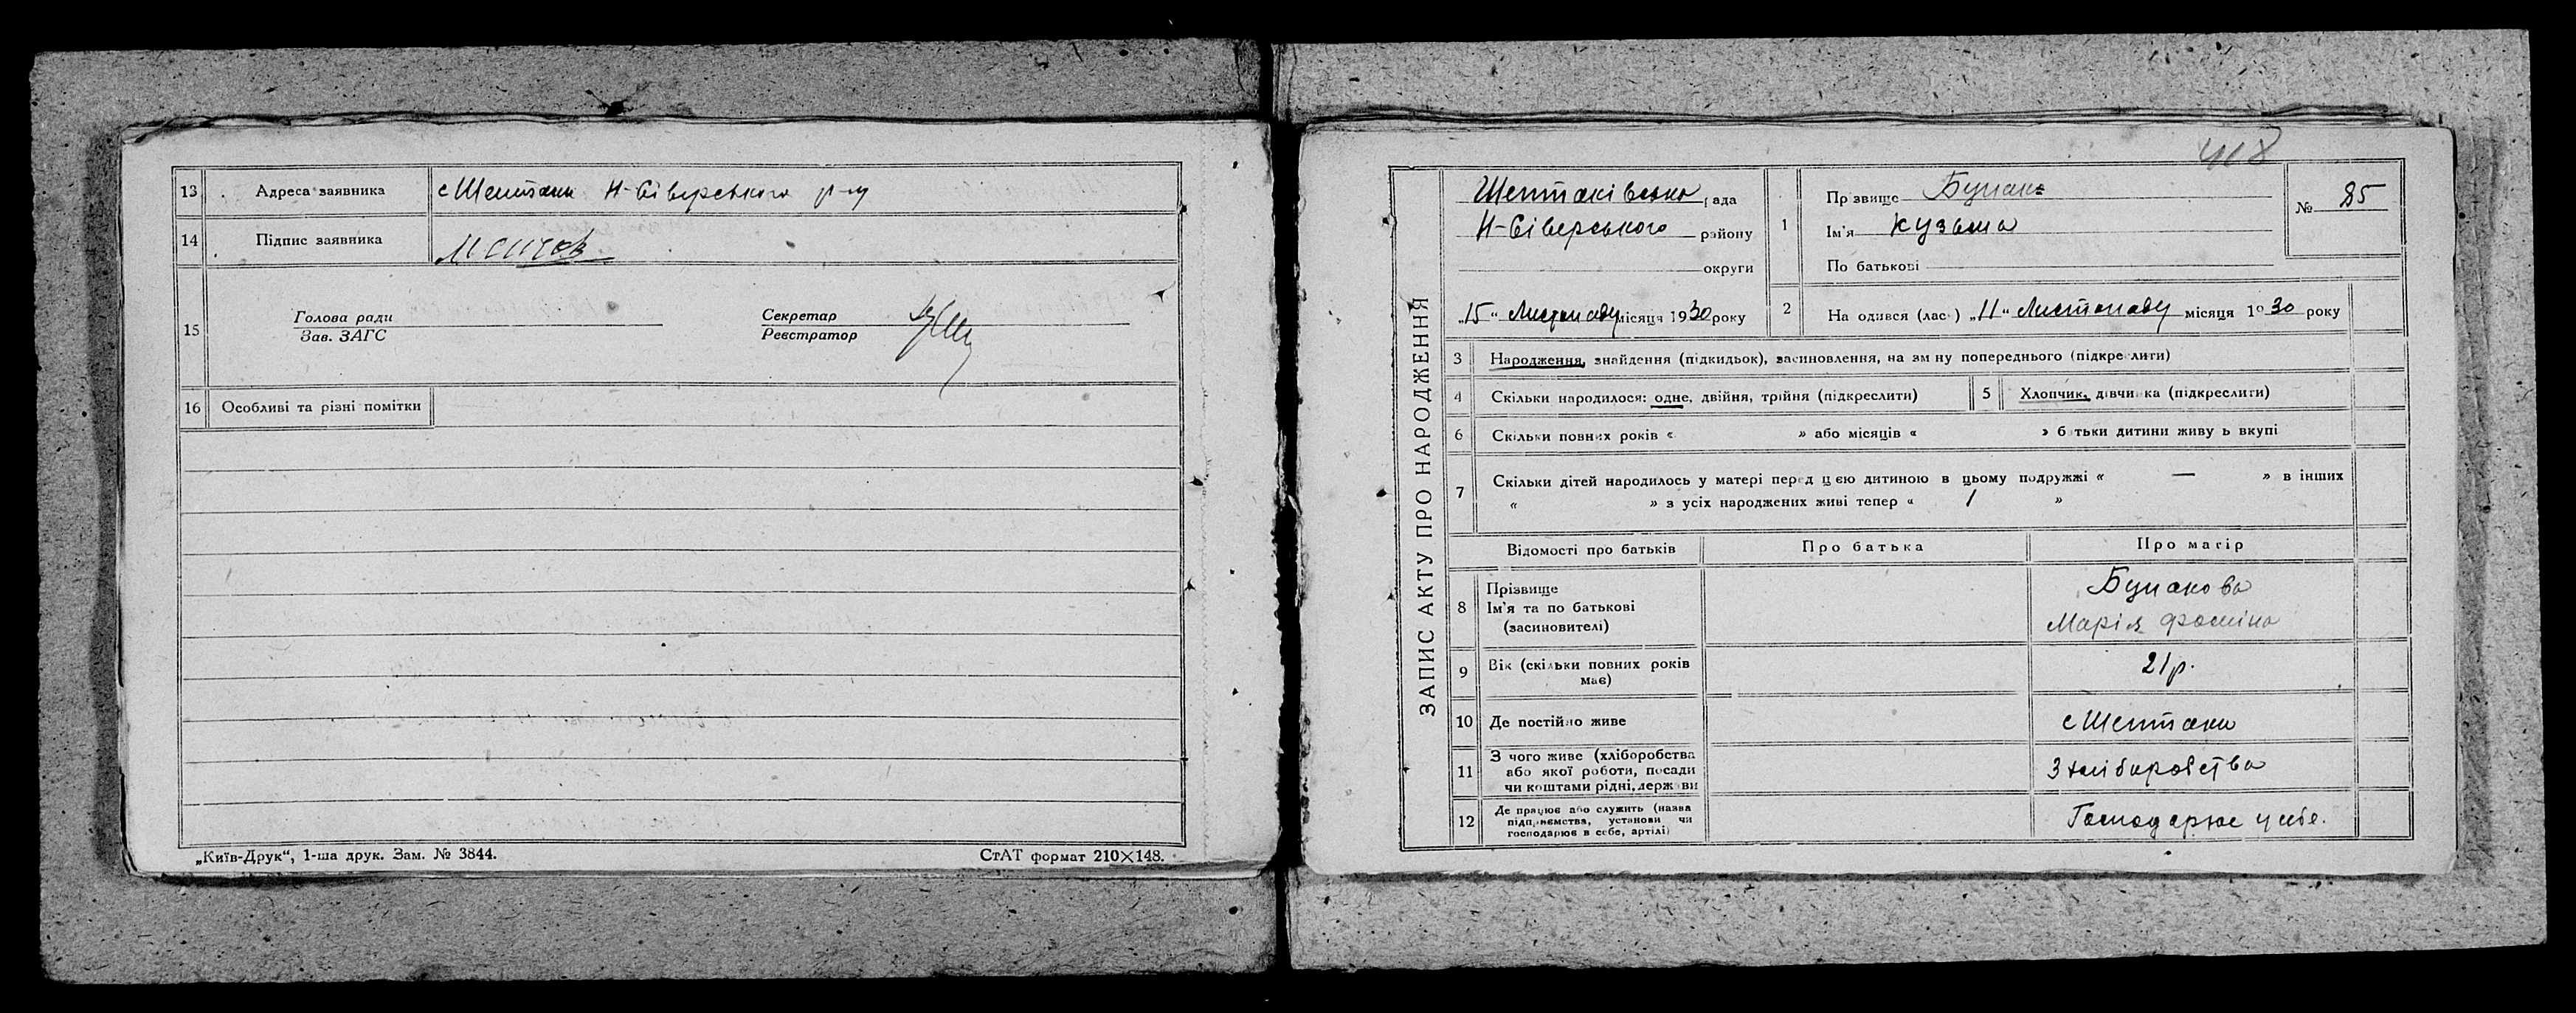 13 Адреса заявника с Шептаки Н-Сіверського р-ну
14 Підпис заявника
15 Голова ради
Зав. ЗАГС
Секретар
Реєстратор
16 Особливі та різні помітки
„Київ-Друк“, 1-ша друк. Зам. № 3844.
СтАТ формат 210×148.
418
ЗАПИС АКТУ ПРО НАРОДЖЕННЯ
Шептаківська рада
Н-Сіверського району
округи
„15“ Листопаду місяця 1930 року
1 Прізвище
Ім'я Кузьма
По батькові
№ 85
2 Народився (лась) „11“ Листопаду місяця 1930 року
3 Народження, знайдення (підкидьок), засиновлення, на зміну попереднього (підкреслити)
4 Скільки народилося: одне, двійня, трійня (підкреслити)
5 Хлопчик, дівчинка (підкреслити)
6 Скільки повних років « » або місяців « » батьки дитини живуть вкупі
7 Скільки дітей народилось у матері перед цією дитиною в цьому подружжі « — » в інших
« » з усіх народжених живі тепер « 1 »
Відомості про батьків Про батька Про матір
8 Прізвище
Ім'я та по батькові
(засиновителі)
Марія Фомівна
9 Вік (скільки повних років
має)
21 р.
10 Де постійно живе с Шептаки
11 З чого живе (хліборобства
або якої роботи, посади
чи коштами рідні, держави
З хліборобства
12 Де працює або служить (назва
підприємства, установи чи
господарює в себе, артілі)
Господарює у себе.